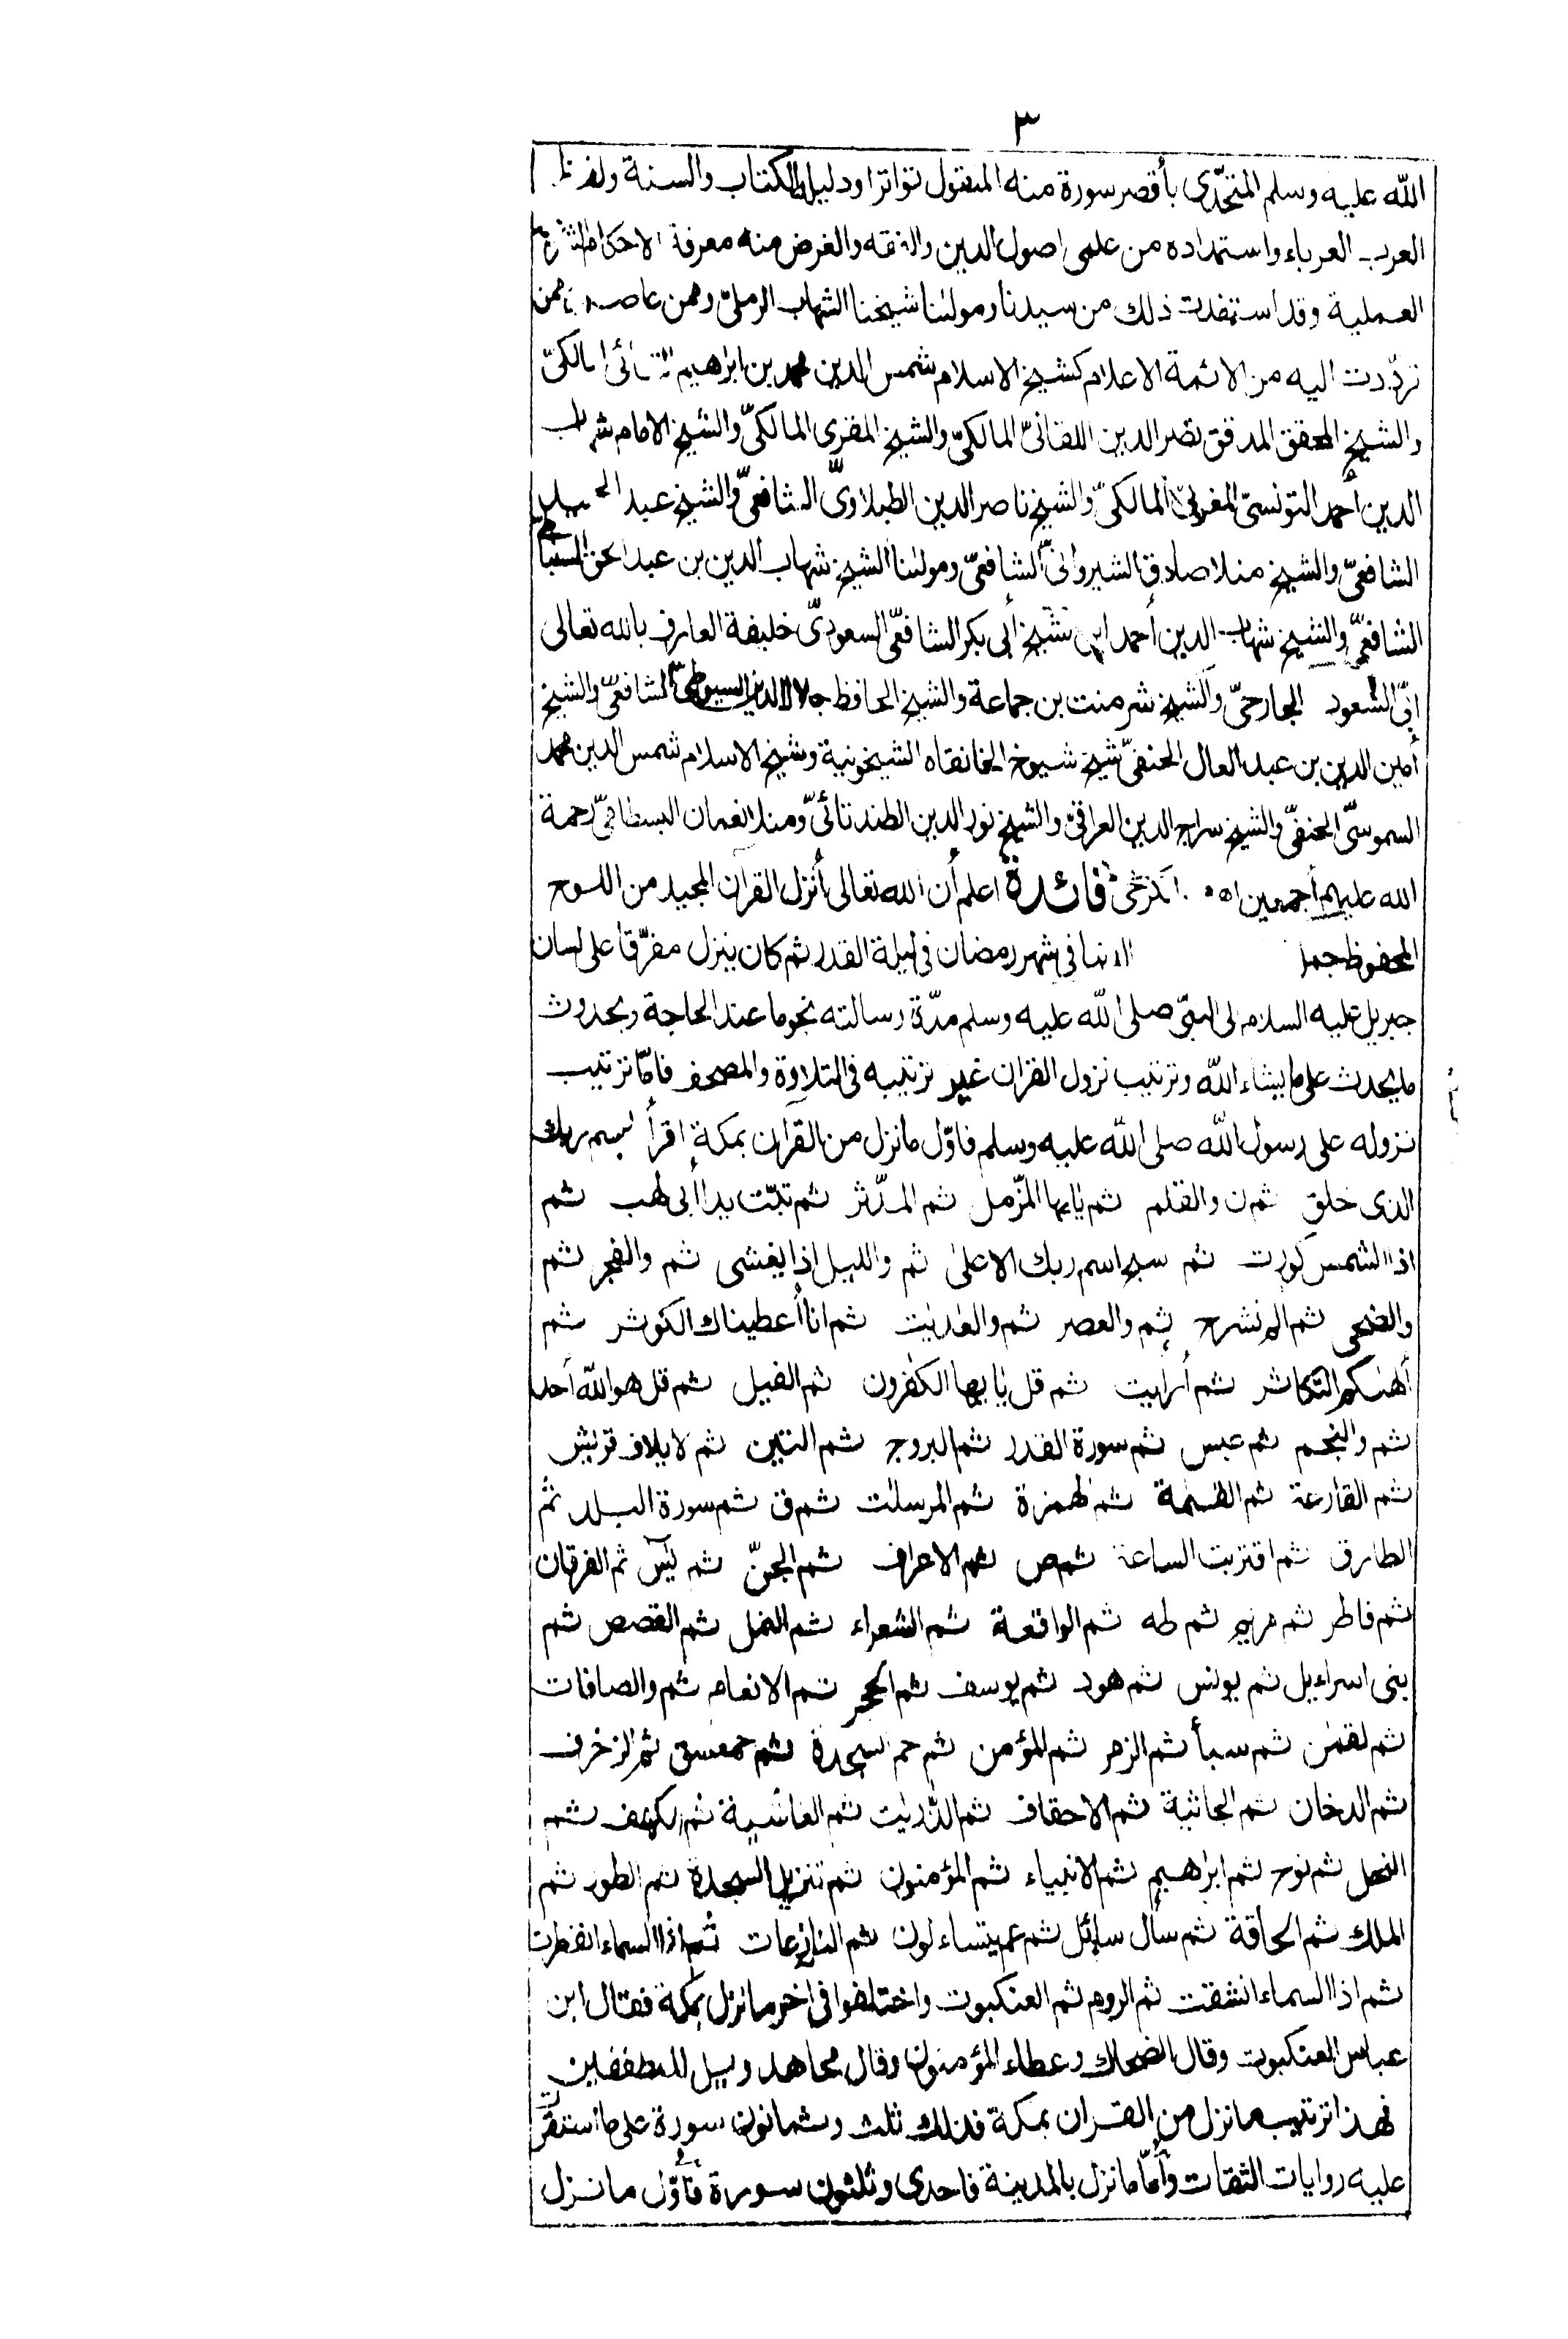 ٣
الله عليه وسلم المتحدّى بأقصر سورة منه المنقول تواترا ودليله الكتاب والسنة ولغة
العرب العرباء واستمداده من علمى اصول الدين والفقه والغرض منه معرفة الاحكام الشرعية
العملية وقد استفدت ذلك من سيدنا ومولٰنا شيخنا الشهاب الرملىّ وممن عاصره ممن
تردّدت اليه من الائمة الاعلام كشيخ الاسلام شمس الدين محمد بن ابراهيم التتائى المالكىّ
والشيخ المحقق المدقق نصر الدين اللقانىّ المالكىّ والشيخ المقرى المالكىّ والشيخ الامام شهاب
الدين أحمد التونسىّ المغربىّ المالكىّ والشيخ ناصر الدين الطبلاوىّ الشافعىّ والشيخ عبد
الشافعىّ والشيخ منلا صادق الشيروانىّ الشافعىّ ومولٰنا الشيخ شهاب الدين بن عبد الحق السنباطى
الشافعىّ والشيخ شهاب الدين أحمد ابن شيخ أبى بكر الشافعىّ السعودىّ خليفة العارف بالله تعالى
أبى السعود الجارحىّ والشيخ شرمنت بن جماعة والشيخ الحافظ جلال الدين السيوطىّ الشافعىّ والشيخ
أمين الدين بن عبد العال الحنفىّ شيخ شيوخ الخانقاه الشيخونية وشيخ الاسلام شمس الدين محمد
السموسىّ الحنفىّ والشيخ سراج الدين العراقىّ والشيخ نور الدين الطندتائىّ ومنلا نعمان البسطامىّ رحمة
الله عليهم أجمعين اه الكرخىّ فائدة اعلم أن الله تعالى أنزل القرآن المجيد من اللوح
المحفوظ جملة الدنيا فى شهر رمضان فى ليلة القدر ثم كان ينزل مفرّقا على لسان
جبريل عليه السلام الى النبىّ صلى الله عليه وسلم مدّة رسالته نجوما عند الحاجة وبحدوث
ما يحدث على ما يشاء الله وترتيب نزول القرآن غير ترتيبه فى التلاوة والمصحف فأمّا ترتيب
نزوله على رسول الله صلى الله عليه وسلم فاوّل ما نزل من القرآن بمكة اقرأ باسم ربك
الذى خلق ثم ن والقلم ثم يٰايها المزّمل ثم المدّثر ثم تبّت يدا أبى لهب ثم
اذا الشمس كورت ثم سبح اسم ربك الاعلىٰ ثم والليل اذا يغشى ثم والفجر ثم
والضحى ثم الم نشرح ثم والعصر ثم والعٰديٰت ثم انا أعطيناك الكوثر ثم
ألهٰىكم التكاثر ثم أرايت ثم قل يٰايها الكٰفرون ثم الفيل ثم قل هو الله أحد
ثم والنجم ثم عبس ثم سورة القدر ثم البروج ثم التين ثم لايلاف قريش
ثم القارعة ثم القيٰمة ثم الهمزة ثم المرسلٰت ثم ق ثم سورة البلد ثم
الطارق ثم اقتربت الساعة ثم ص ثم الاعراف ثم الجنّ ثم يٓس ثم الفرقان
ثم فاطر ثم مريم ثم طه ثم الواقعة ثم الشعراء ثم النمل ثم القصص ثم
بنى اسراءيل ثم يونس ثم هود ثم يوسف ثم الحجر ثم الانعام ثم والصافات
ثم لقمٰن ثم سبأ ثم الزمر ثم المؤمن ثم حم السجدة ثم حمعسق ثم الزخرف
ثم الدخان ثم الجاثية ثم الاحقاف ثم الذّريٰت ثم الغاشية ثم الكهف ثم
النحل ثم نوح ثم ابراهيم ثم الانبياء ثم المؤمنون ثم تنزيل السجدة ثم الطور ثم
الملك ثم الحاقة ثم سأل سائل ثم عم يتساءلون ثم النازعات ثم اذا السماء انفطرت
ثم اذا السماء انشقت ثم الروم ثم العنكبوت واختلفوا فى اخر ما نزل بمكة فقال ابن
عباس العنكبوت وقال الضحاك وعطاء المؤمنون وقال مجاهد ويل للمطففين
فهذا ترتيب ما نزل من القرآن بمكة فذلك ثلث وثمانون سورة على ما استقرّت
عليه روايات الثقات وأمّا ما نزل بالمدينة فاحدى وثلثون سورة فأوّل ما نزل